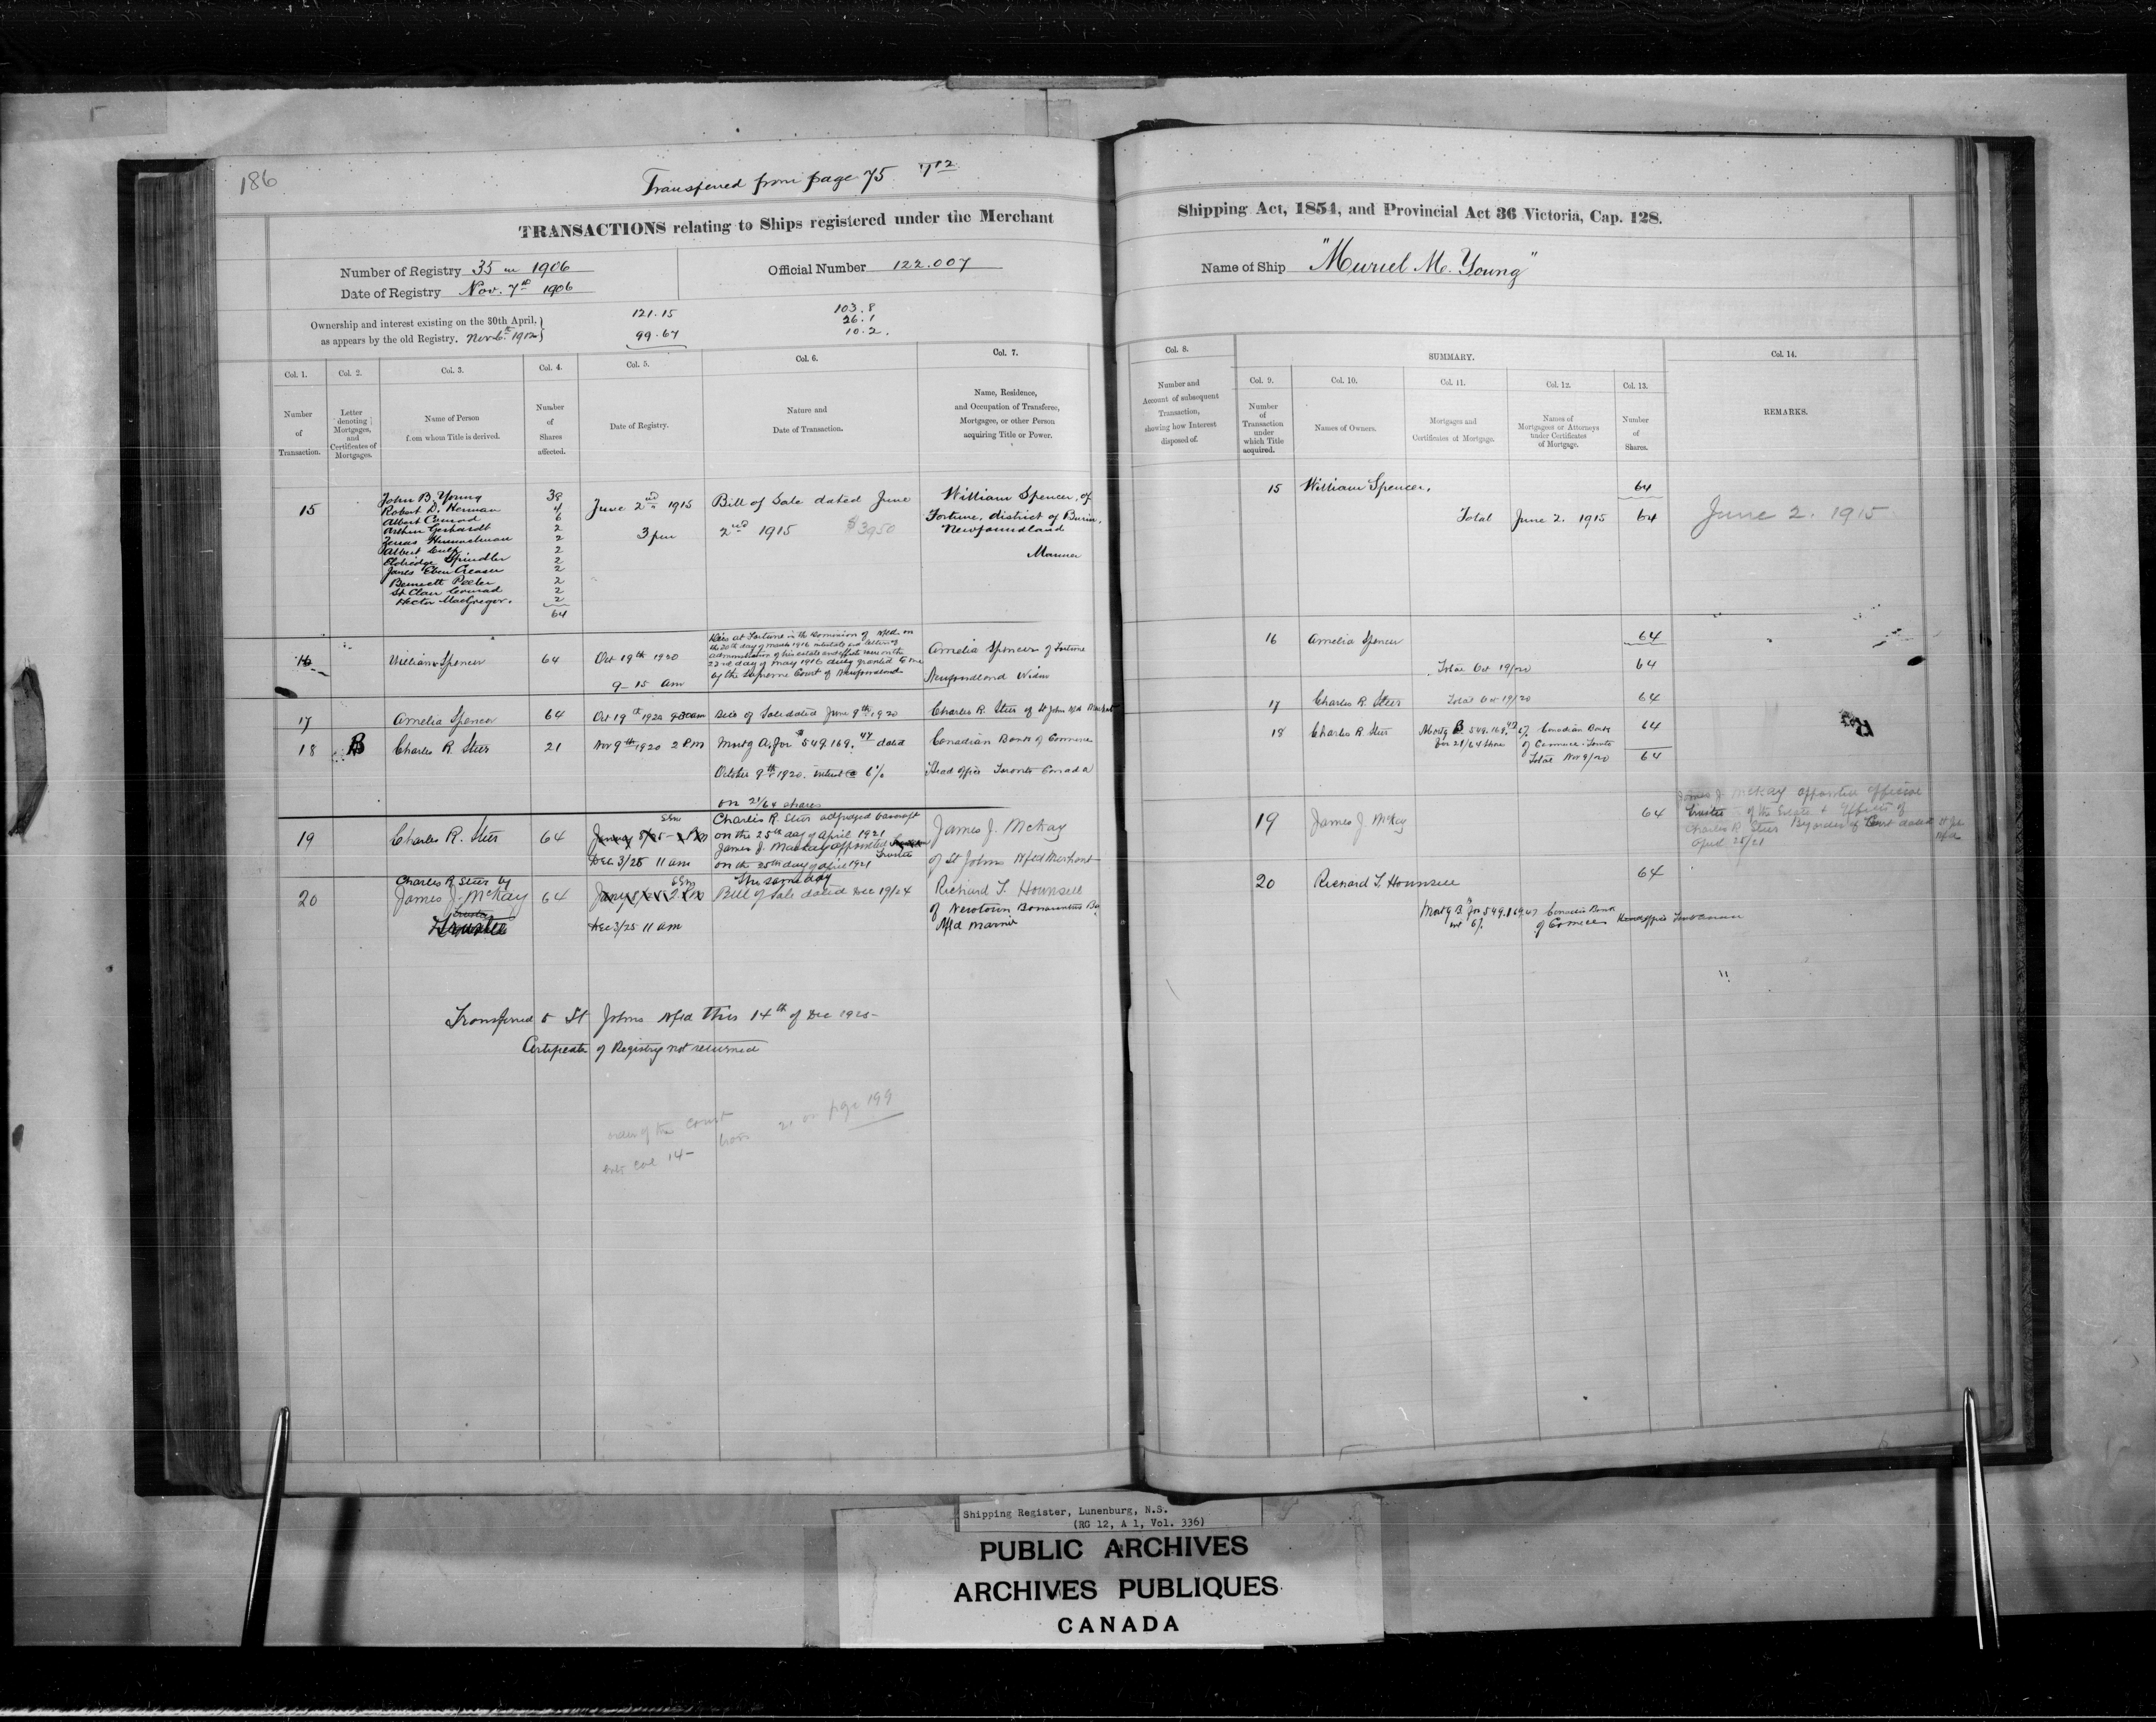 186
Transferred from page 75
TRANSACTIONS relating to Ships registered under the Merchant
Number of Registry 35 in 1906
Date of Registry Nov. 7th 1906
Official Number 122.007
Ownership and interest existing on the 30th April,
as appears by the old Registry. Nov 6th 1912
121.15
99.67
103.8
26.1
10.2.
Col. 1. Number of Transaction.
Col. 2. Letter denoting Mortgages, and Certificates of Mortgages.
Col. 3. Name of Person from whom Title is derived.
Col. 4. Number of Shares affected.
Col. 5. Date of Registry.
Col. 6. Nature and Date of Transaction.
Col. 7. Name, Residence, and Occupation of Transferee, Mortgagee, or other Person acquiring Title or Power.
15
John B. Young 38
Robert D. Herman 4
Albert Conrad 6
Arthur Gerhardt 2
Zenas Hummelman 2
Albert 2
Eldridge Spindler 2
James Eben Creaser 2
Bennett Peeler 2
St Clair Conrad 2
Hector MacGregor. 2
64
June 2nd 1915
3 pm
Bill of Sale dated June
2nd 1915 $3950
William Spencer, of
Fortune, district of Burin,
Newfoundland
Mariner
16 William Spencer 64 Oct 19th 1920
9-15 am
Dies at Fortune in the Dominion of Nfld on
the 20th day of March 1916 intestate and letters of
administration of his estate and effects were on the
22nd day of May 1916 duly granted to me
by the Supreme Court of Newfoundland
Amelia Spencer of Fortune
Newfoundland Widow
17 Amelia Spencer 64 Oct 19th 1920 9-30 am Bill of Sale dated June 9th 1920 Charles R. Steer of St John Nfld Merchant
18 B Charles R. Steer 21 Nov 9th 1920 2 P.M Mortg A. for $549.169.47 dated Canadian Bank of Commerce
October 9th 1920. interest @ 6% Head office Toronto Canada
on 21/64 shares
19 Charles R. Steer 64
Dec 3/25 11 am
Charles R. Steer adjudged bankrupt
on the 25th day of April 1921
James J. Mackay appointed
Trustee
on the 25th day of April 1921
the same day
James J. McKay
of St Johns Nfld Merchant
20
Charles R. Steer by
James J. McKay
Trustee
64
Dec 3/25 11 am
Bill of Sale dated Dec 19/24
Richard T. Hounsell
of Newtown Bonavista Bay
Nfld Mariner
Transferred to St Johns Nfld This 14th of Dec 1925-
Certificate of Registry not returned
order of the Court
on page 199
col 14-
Shipping Act, 1854, and Provincial Act 36 Victoria, Cap. 128.
Name of Ship "Muriel M. Young"
Col. 8. Number and Account of subsequent Transaction, showing how Interest disposed of.
SUMMARY.
Col. 9. Number of Transaction under which Title acquired.
Col. 10. Names of Owners.
Col. 11. Mortgages and Certificates of Mortgage.
Col. 12. Names of Mortgagees or Attorneys under Certificates of Mortgage.
Col. 13. Number of Shares.
Col. 14. REMARKS.
15 William Spencer. 64
Total June 2. 1915 64 June 2. 1915
16 Amelia Spencer 64
Total Oct 19/20 64
17 Charles R. Steer Total Oct 19/20 64
18 Charles R. Steer Mortg B 549.169.47 6% Canadian Bank 64
for 21/64 share of Commerce Toronto
Total Nov 9/20 64
19 James J. McKay 64
James J. McKay appointed official
trustee of the Estate & Effects of
Charles R Steer By order of Court dated St Johns Nfld
April 25/21
20 Richard T. Hounsell 64
Mortg B. for 549.169.47 Canadian Bank
int 6% of Commerce Head office
Shipping Register, Lunenburg, N.S.
(RG 12, A 1, Vol. 336)
PUBLIC ARCHIVES
ARCHIVES PUBLIQUES
CANADA